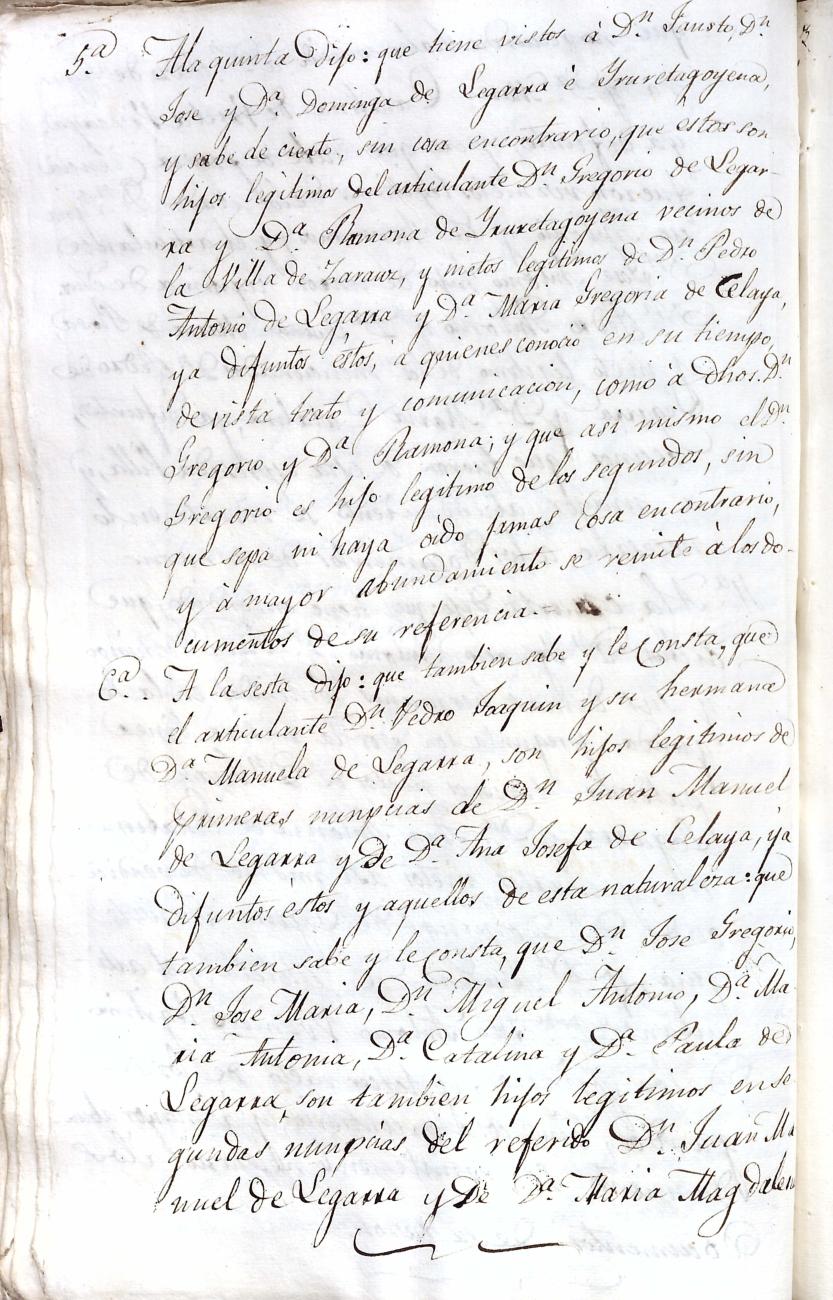 5.a A la quinta dijo: que tiene vistos à Dn. Fausto, Dn.
Jose y Da. Dominga de Legarra è Yruretagoyena,
y sabe de cierto, sin cosa encontrario, que èstos son
hijos legitimos del articulante Dn. Gregorio de Legar-
ra y Da. Ramona de Yruretagoyena vecinos de
la Villa de Zarauz, y nietos legitimos de Dn. Pedro
Antonio de Legarra y Da. Maria Gregoria de Celaya,
ya difuntos èstos, à quienes conociò en su tiempo,
de vista trato y comunicacion, como à dhos. Dn.
Gregorio y Da. Ramona; y que asi mismo el Dn.
Gregorio es hijo legitimo de los segundos, sin
que sepa ni haya oido jamas cosa encontrario,
y à mayor abundamiento se remite à los do-
cumentos de su referencia.
6a. A la sesta dijo: que tambien sabe y le Consta, que
el articulante Dn. Pedro Joaquin y su hermana
Da. Manuela de Legarra, son hijos legitimos de
primeras nunpcias de Dn. Juan Manuel
de Legarra y de Da. Ana Josefa de Celaya, ya
difuntos èstos y aquellos de esta naturaleza: que
tambien sabe y le Consta, que Dn. Jose Gregorio,
Dn. Jose Maria, Dn. Miguel Antonio, Da. Ma-
ria Antonia, Da. Catalina y Da. Paula de
Legarra, son tambien hijos legitimos en se
gundas nunpcias del referido Dn. Juan Ma
nuel de Legarra y de Da. Maria Magdalen